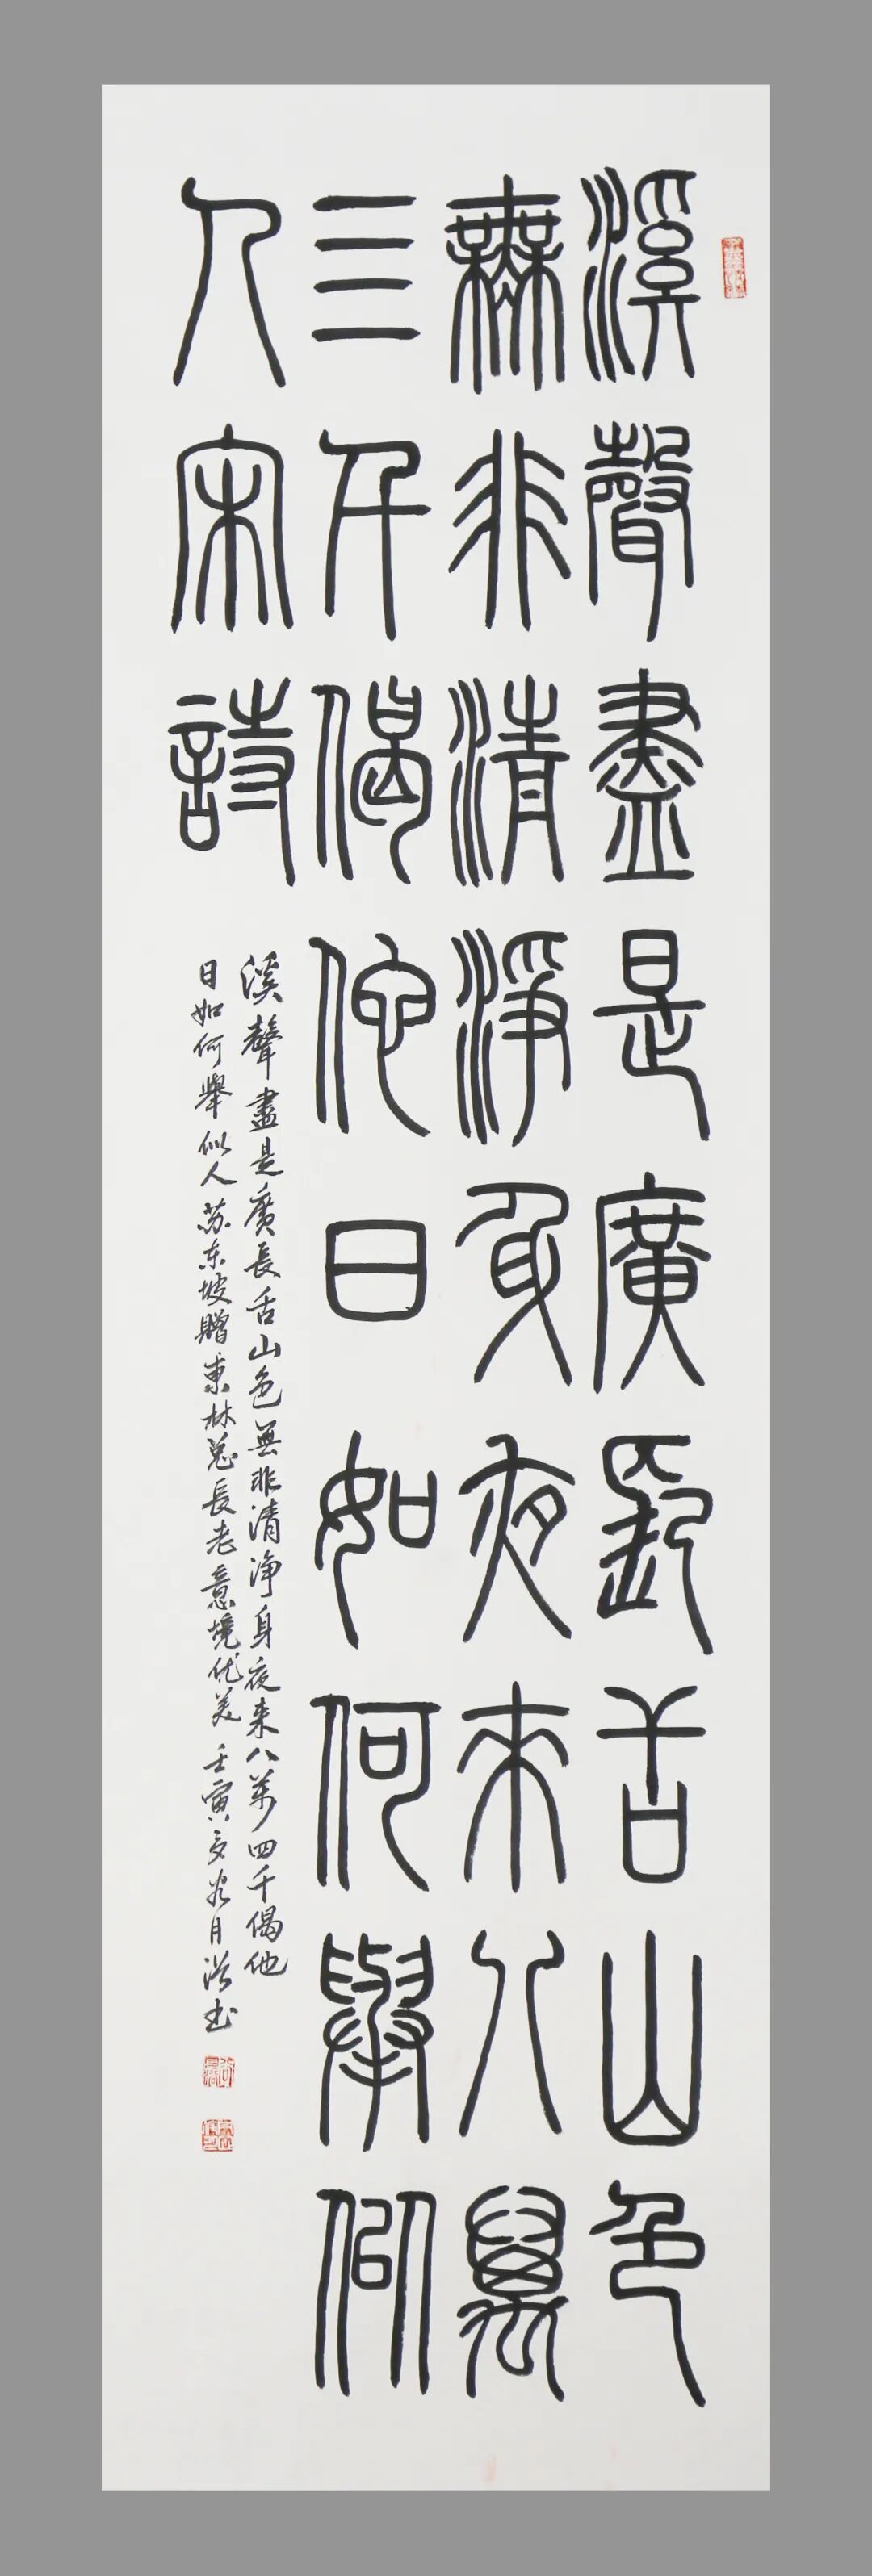 溪聲盡是廣長舌山色
無非清淨身夜來八萬
亖千偈他日如何舉似
人宋詩
溪聲盡是廣長舌山色無非清淨身夜来八萬四千偈他
日如何舉似人苏东坡贈東林总長老意境优美壬寅